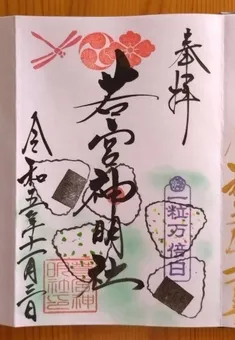 奉拝
一粒万倍日
若宮神明社
令和五年十一月三日